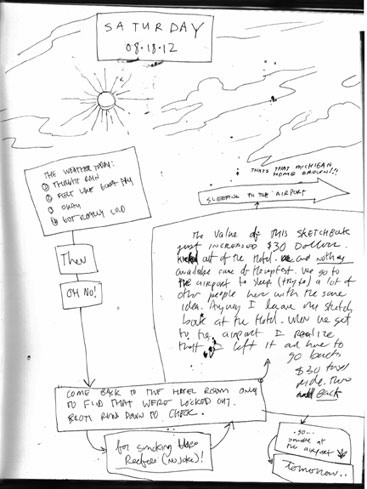 SATURDAY
08·18·12
THE WEATHER TODAY:
THOUGHT RAIN
FELT LIKE GOOD DAY
OKAY
GOT REALLY COLD
THATS THAT MICHIGAN
HOME GROWN!!!
SLEEPING IN THE AIRPORT
Then
OH NO!
The value of this sketchbook
just increased $30 Dollars.
out of the Hotel. we are
available cause of
the airport to sleep (try to) a lot of
other people here with the same
idea. Anyway I leave my sketch
book at the Hotel. When we get
to the airport I realize
that I left it and have to
go back
$30 taxi
ride. There
and Back
COME BACK TO THE HOTEL ROOM ONLY
TO FIND THAT WE'RE LOCKED OUT.
RUN DOWN TO CHECK.
for smoking
Reefers (No Joke)!
..SO...
at
the airport
tomorrow..